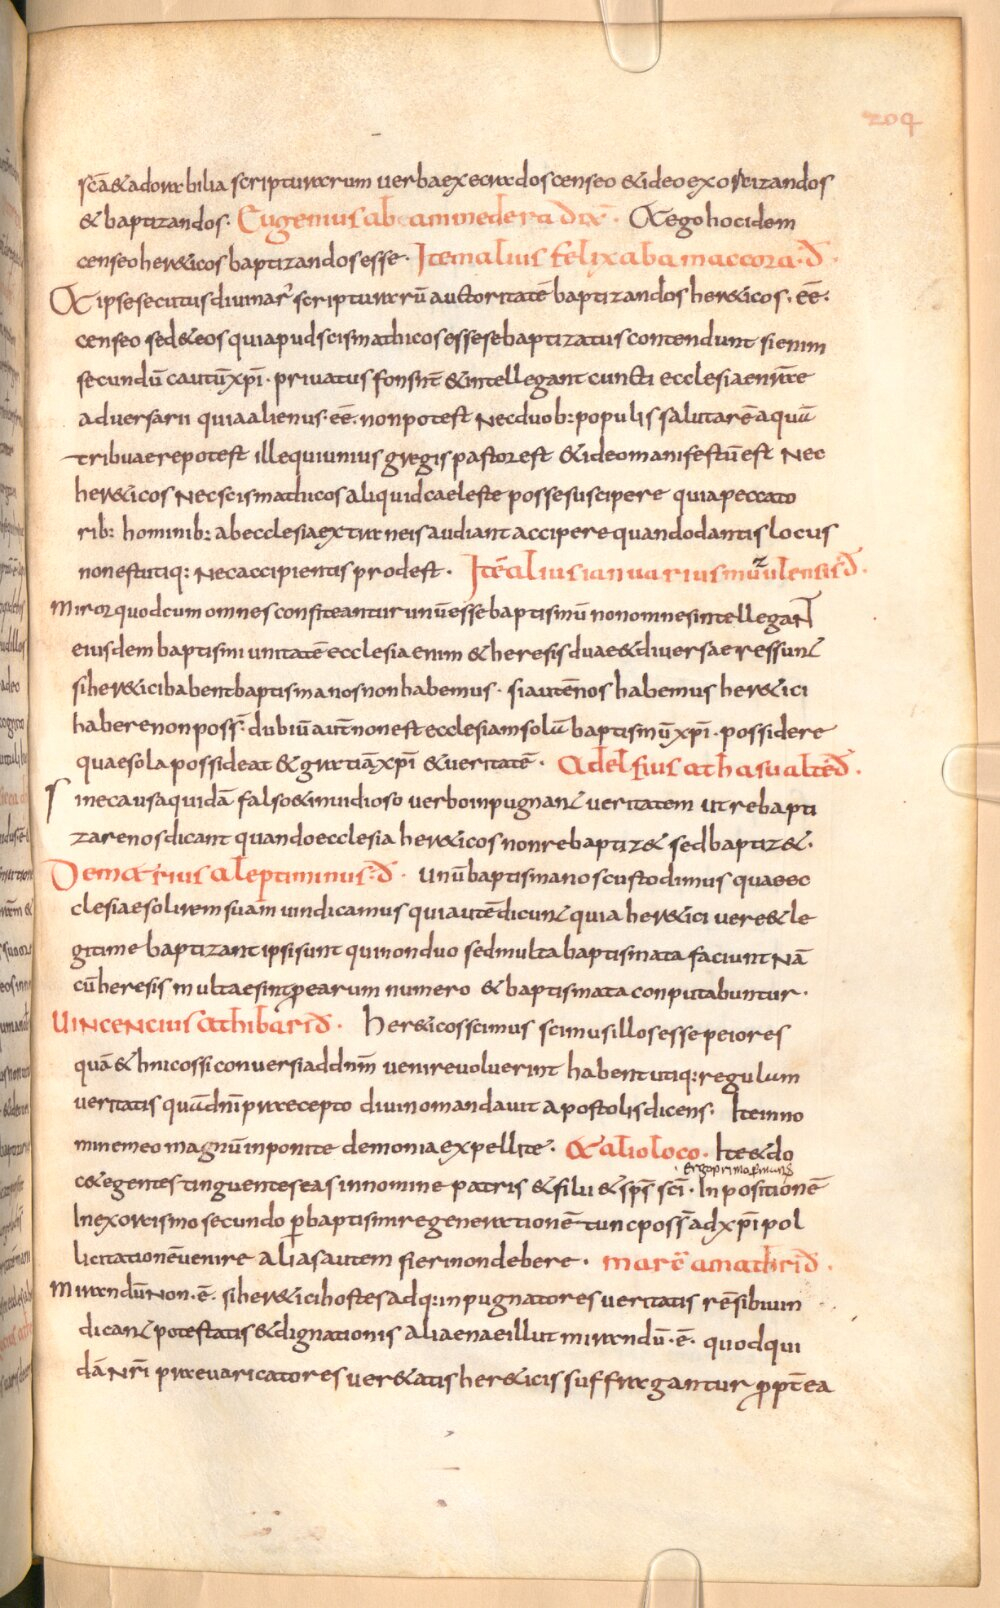 204
scā & adorabilia scripturarum verba execrados censeo & ideo exorcizandos
& baptizandos. Eugenius ab ammedera dix̄. Et ego hoc idem
censeo her&icos baptizandos esse. Item alius felix aba maccora. d̄.
Et ipse secutus divinar̄ scripturarū auctoritatē baptizandos her&icos. eē.
censeo sed & eos qui apud scismathicos esse se baptizatus contendunt si enim
secundū cautū xp̄i. privatus fons nr̄ & intellegant cuncti ecclesiae nr̄ae
adversarii quia alienus. eē. non potest Nec duob: populis salutarē aquā
tribuaere potest ille qui unius gregis pastor est & ideo manifestū est Nec
her&icos Nec scismathicos aliquid caeleste posse suscipere quia peccato
rib: hominib: ab ecclesia extraneis audiant accipere quando dantis locus
non est utiq: Nec accipientis prodest. Itē alius ianuarius muzulensis d̄.
Miror quod cum omnes confiteantur unū esse baptismū non omnes intellegant
eiusdem baptismi unitatē ecclesia enim & heresis duae & diversae res sunt
si her&ici habent baptisma nos non habemus. si autē nos habemus her&ici
habere non poss̄. dubiū aut̄ non est ecclesiam solū baptismū xp̄i. possidere
quae sola possideat & gratiā xp̄i & veritatē. Adelfius a thasualte d̄.
Sine causa quidā falso & invidioso verbo inpugnant veritatem ut rebapti
zare nos dicant quando ecclesia her&icos non rebaptiz& sed baptiz&.
Demetrius a leptiminus. d̄. Unū baptisma nos custodimus qua eec
clesiae soli rem suam vindicamus qui autē dicunt quia her&ici vere & le
gitime baptizant ipsi sunt qui non duo sed multa baptismata faciunt Nā
cū heresis multae sint p̄ earum numero & baptismata conputabuntur.
Uincencius a thibari d̄. Her&icos scimus scimus illos esse peiores
quā & hnicos si conversi ad dn̄m venire voluerint habent utiq: regulam
veritatis quā dn̄i praecepto divino mandavit apostolis dicens. Ite in no
mine meo magnū inponite demonia expellite. Et alio loco. Ite & do
ergo primo p manus
c& e gentes tinguentes eas in nomine patris & filii & sp̄s sc̄i. In positionē
In exorcismo secundo p̄ baptismi regenerationē tunc possā ad xp̄i pol
licitationē venire alias autem fieri non debere. Marc̄ a mathri d̄.
Mirandū Non. ē. si her&ici hostes adq: inpugnatores veritatis rē sibi vin
dicant potestatis & dignationis alienae illut mirandū. ē. quod qui
dā Nr̄i praevaricatores ver&atis her&icis suffragantur p̄pt̄ea